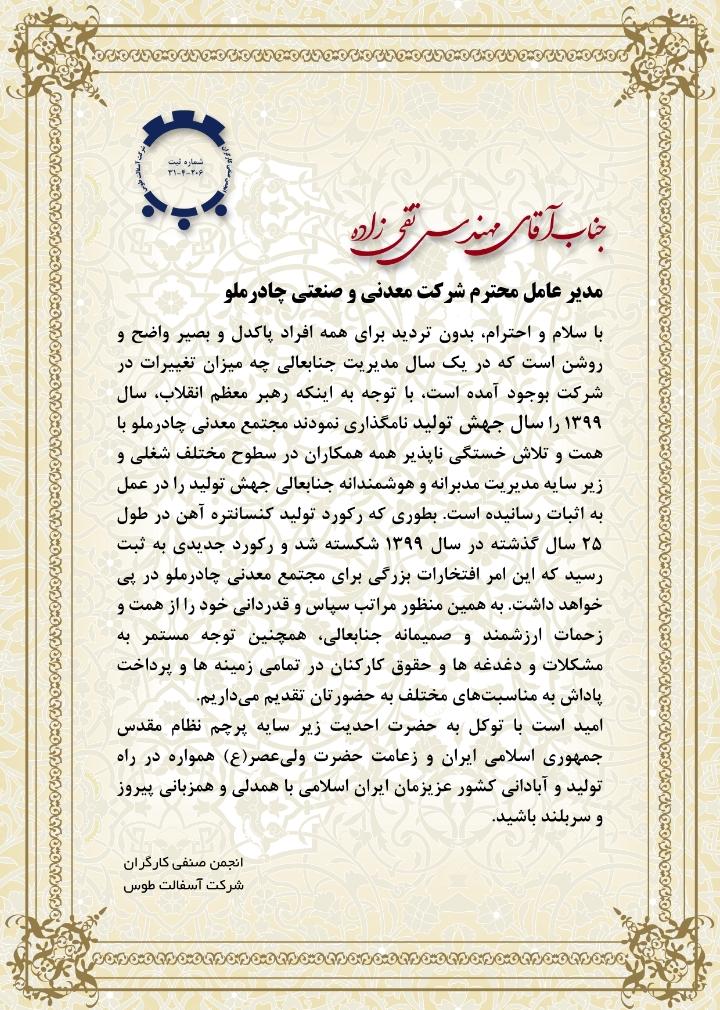 انجمن صنفی کارگران
شرکت آسفالت طوس
شماره ثبت
۳۱-۴-۲۰۶
جناب آقای مهندس تقی زاده
مدیر عامل محترم شرکت معدنی و صنعتی چادرملو
با سلام و احترام، بدون تردید برای همه افراد پاکدل و بصیر واضح و
روشن است که در یک سال مدیریت جنابعالی چه میزان تغییرات در
شرکت بوجود آمده است، با توجه به اینکه رهبر معظم انقلاب، سال
۱۳۹۹ را سال جهش تولید نامگذاری نمودند مجتمع معدنی چادرملو با
همت و تلاش خستگی ناپذیر همه همکاران در سطوح مختلف شغلی و
زیر سایه مدیریت مدبرانه و هوشمندانه جنابعالی جهش تولید را در عمل
به اثبات رسانیده است. بطوری که رکورد تولید کنسانتره آهن در طول
۲۵ سال گذشته در سال ۱۳۹۹ شکسته شد و رکورد جدیدی به ثبت
رسید که این امر افتخارات بزرگی برای مجتمع معدنی چادرملو در پی
خواهد داشت. به همین منظور مراتب سپاس و قدردانی خود را از همت و
زحمات ارزشمند و صمیمانه جنابعالی، همچنین توجه مستمر به
مشکلات و دغدغه ها و حقوق کارکنان در تمامی زمینه ها و پرداخت
پاداش به مناسبت‌های مختلف به حضورتان تقدیم می‌داریم.
امید است با توکل به حضرت احدیت زیر سایه پرچم نظام مقدس
جمهوری اسلامی ایران و زعامت حضرت ولی‌عصر(ع) همواره در راه
تولید و آبادانی کشور عزیزمان ایران اسلامی با همدلی و همزبانی پیروز
و سربلند باشید.
انجمن صنفی کارگران
شرکت آسفالت طوس